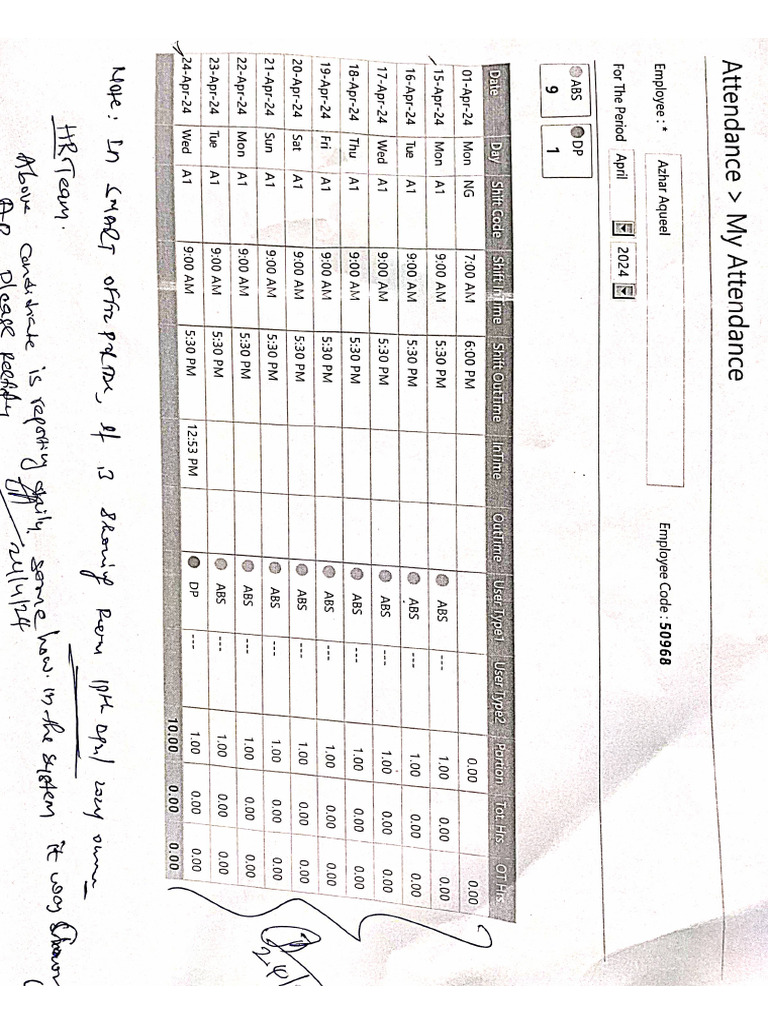 Attendance > My Attendance
Employee : * Azhar Aqueel Employee Code : 50968
For The Period April 2024
ABS DP
9 1
Date Day Shift Code Shift InTime Shift OutTime InTime OutTime User Type1 User Type2 Portion Tot. Hrs OT Hrs
01-Apr-24 Mon NG 7:00 AM 6:00 PM 0.00 0.00
15-Apr-24 Mon A1 9:00 AM 5:30 PM ABS --- 1.00 0.00 0.00
16-Apr-24 Tue A1 9:00 AM 5:30 PM ABS --- 1.00 0.00 0.00
17-Apr-24 Wed A1 9:00 AM 5:30 PM ABS --- 1.00 0.00 0.00
18-Apr-24 Thu A1 9:00 AM 5:30 PM ABS --- 1.00 0.00 0.00
19-Apr-24 Fri A1 9:00 AM 5:30 PM ABS --- 1.00 0.00 0.00
20-Apr-24 Sat A1 9:00 AM 5:30 PM ABS --- 1.00 0.00 0.00
21-Apr-24 Sun A1 9:00 AM 5:30 PM ABS --- 1.00 0.00 0.00
22-Apr-24 Mon A1 9:00 AM 5:30 PM ABS --- 1.00 0.00 0.00
23-Apr-24 Tue A1 9:00 AM 5:30 PM ABS --- 1.00 0.00 0.00
24-Apr-24 Wed A1 9:00 AM 5:30 PM 12:53 PM DP --- 1.00 0.00 0.00
10.00 0.00 0.00
Note: In SMART office, it is showing from April 2024
HR Team.
Above candidate is reporting daily, some how in the system it was shown
Please rectify 24/4/24